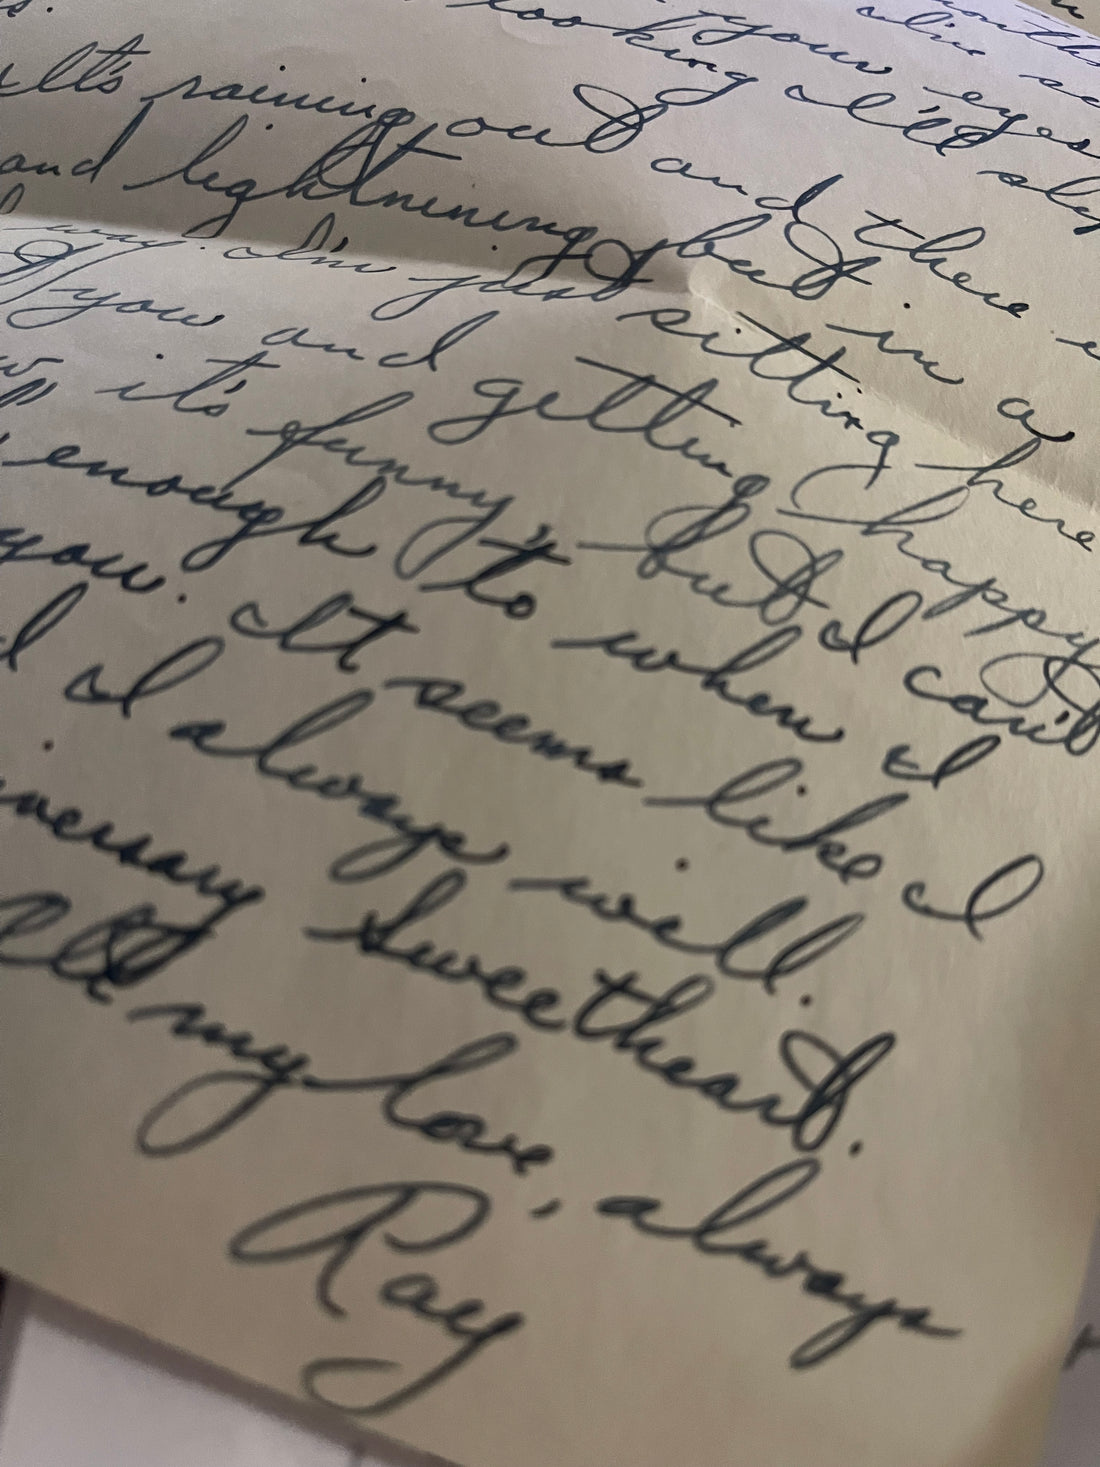 months
your eyes I've
looking I'll
It's raining out and there
and lightnining, but in a
way. I'm just sitting here
you and getting happy
it's funny, but I can't
enough to when I
you. It seems like I
I always will.
Sweetheart.
All my love, always
Ray